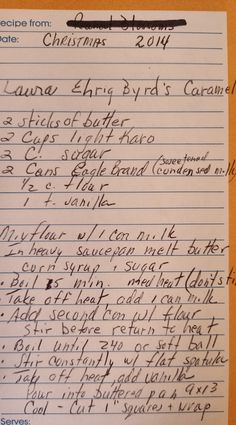 ecipe from:
ate: CHRISTMAS 2014
Laura Ehrig Byrd's Caramel
2 sticks of butter
2 Cups light Karo
2 C. sugar
2 Cans Eagle Brand (sweetened condensed milk
1/2 c. flour
1 t. vanilla
Mix flour w/ 1 can milk
In heavy saucepan melt butter
corn syrup + sugar
• Boil 5 min. med heat (don't sti
• Take off heat, add 1 can milk
• Add second can w/ flour
Stir before return to heat
• Boil until 240 or soft ball
• Stir constantly w/ flat spatula
• Take off heat, add vanilla
Pour into buttered pan 9x13
Cool - Cut 1" squares + wrap
Serves: